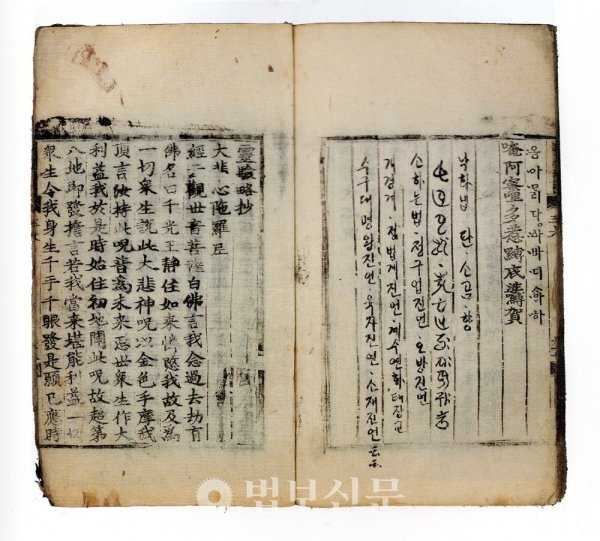 낙화법 단.소금.향
소하는법.정구업진언 오방진언
개경게.정법계진언 계수연화태장교
수구대명왕진언.육자진언.소재진언 云云
靈驗略抄
大悲心陁羅尼
經云觀世音菩薩白佛言我念過去劫有
佛名曰千光王静住如來憐愍我故及爲
一切衆生說此大悲神呪以金色手摩我
頂言汝持此呪普爲未來惡世衆生作大
利益我於是時始住初地聞此呪故超第
八地即發誓言若我當來堪能利益一切
衆生令我身生千手千眼發是願已應時
법보신문